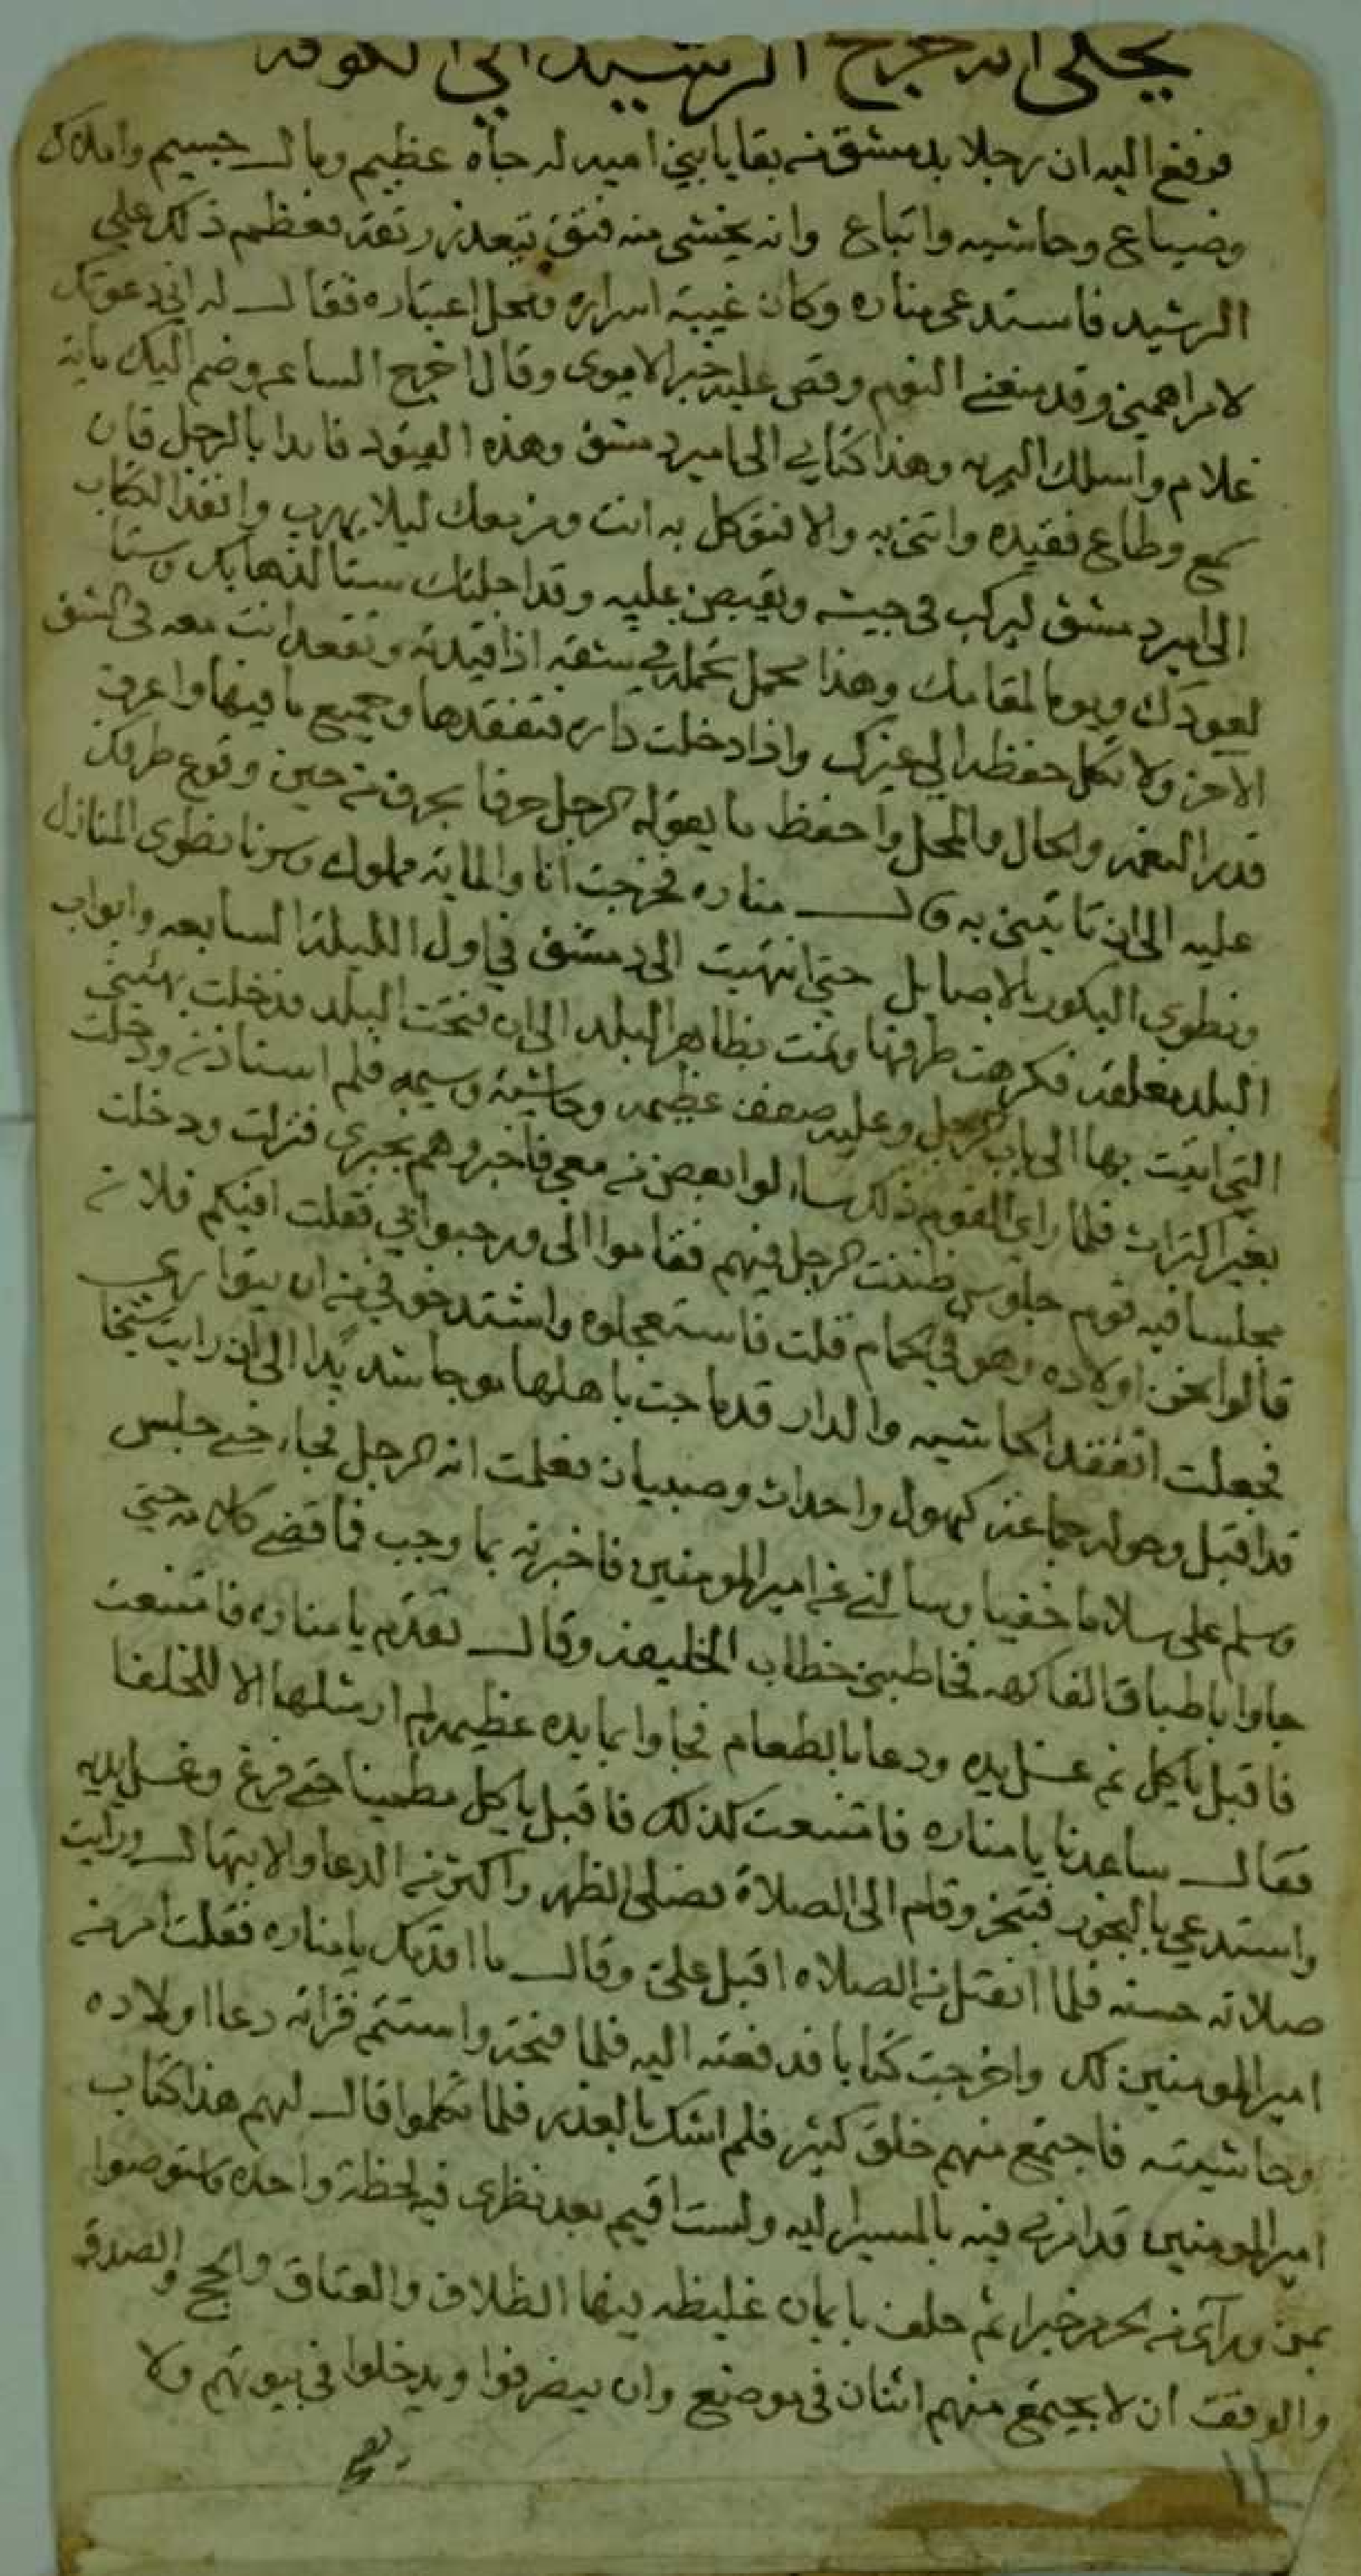 يحكى انه خرج الرشيد الى الكوفه
فرفع اليه ان رجلا بدمشق من بقايا بني اميه له جاه عظيم ومال جسيم واملاك
وضياع وحاشيه واتباع وانه يخشى منه فتق يتعذر رتقه فعظم ذلك على
الرشيد فاستدعى مناره وكان غيبة اسراره ومحل اعتباره فقال له اني دعوتك
لامر اهمني وقد منعني النوم وقص عليه خبر الاموي وقال اخرج الساعه وضم اليك ماية
غلام واسلك البريه وهذا كتابي الى امير دمشق وهذه القيود فابدا بالرجل فان
سمع وطاع فقيده واتني به والا فتوكل به انت ومن معك ليلا يهرب وانفذ الكتاب
الى امير دمشق ليركب في جيشه ويقبض عليه وقد اجلتك ستا لذهابك وستا
لعودك ويوما لمقامك وهذا محمل تحمله في شقه اذا قيدته وتقعد انت معه في الشق
الاخر ولا تكل حفظه الى غيرك واذا دخلت داره فتفقدها وجميع ما فيها واعرف
قدر النعمه والحال والمحل واحفظ ما يقوله الرجل حرفا بحرف من حين وقوع طرفك
عليه الى ان تاتيني به قال مناره فخرجت انا والماية مملوك وسرنا نطوي المنازل
ونطوي البكور بالاصايل حتى انتهيت الى دمشق في اول الليلة السابعه وابواب
البلد مغلقه فكرهت طرقها ونمت بظاهر البلد الى ان فتحت البلد فدخلت بهيئتي
التي اتيت بها الى باب الرجل وعليه صفف عظيمه وحاشية وسيمه فلم استاذن ودخلت
بغير اكتراث فلما راى القوم ذلك سالوا بعض من معي فاخبروهم بخبري فنزلت ودخلت
مجلسا فيه قوم جلوس ظننت الرجل فيهم فقاموا الي ورحبوا بي فقلت افيكم فلان
قالوا نحن اولاده وهو في الحمام قلت فاستعجلوه واشتد خوفي من ان يتوارى
فجعلت اتفقد الحاشيه والدار قد ماجت باهلها موجا شديدا الى ان رايت شيخا
قد اقبل وحوله جماعة كهول واحداث وصبيان فعلمت انه الرجل فجاء حتى جلس
وسلم علي سلاما خفيا وسالني عن امير المومنين فاخبرته بما وجب فما قضى كلامه حتى
جاوا باطباق الفاكهه فخاطبني خطاب الخليفه وقال تقدم يا مناره فامتنعت
فاقبل ياكل ثم غسل يده ودعا بالطعام فجاوا بمايده عظيمه لم ار مثلها الا للخلفا
فقال ساعدنا يا مناره فامتنعت كذلك فاقبل ياكل مطمينا حتى فرغ وغسل يديه
واستدعى بالبخور فتبخر وقام الى الصلاة فصلى الظهر واكثر من الدعا والابتهال ورايت
صلاته حسنه فلما انفتل من الصلاه اقبل علي وقال ما اقدمك يا مناره فقلت امر من
امير المومنين لك واخرجت كتابا فدفعته اليه فلما فتحه واستتم قراته دعا اولاده
وحاشيته فاجتمع منهم خلق كثير فلم اشك بالغدر فلما تكلموا قال لهم هذا كتاب
امير المومنين قد امرني فيه بالمسير اليه ولست اقيم بعد نظري فيه لحظة واحده فاستوصوا
بمن وراي من الحرم خيرا ثم حلف بايمان غليظه فيها الطلاق والعتاق والحج والصدقه
والوقف ان لا يجتمع منهم اثنان في موضع وان ينصرفوا ويدخلوا في بيوتهم ولا